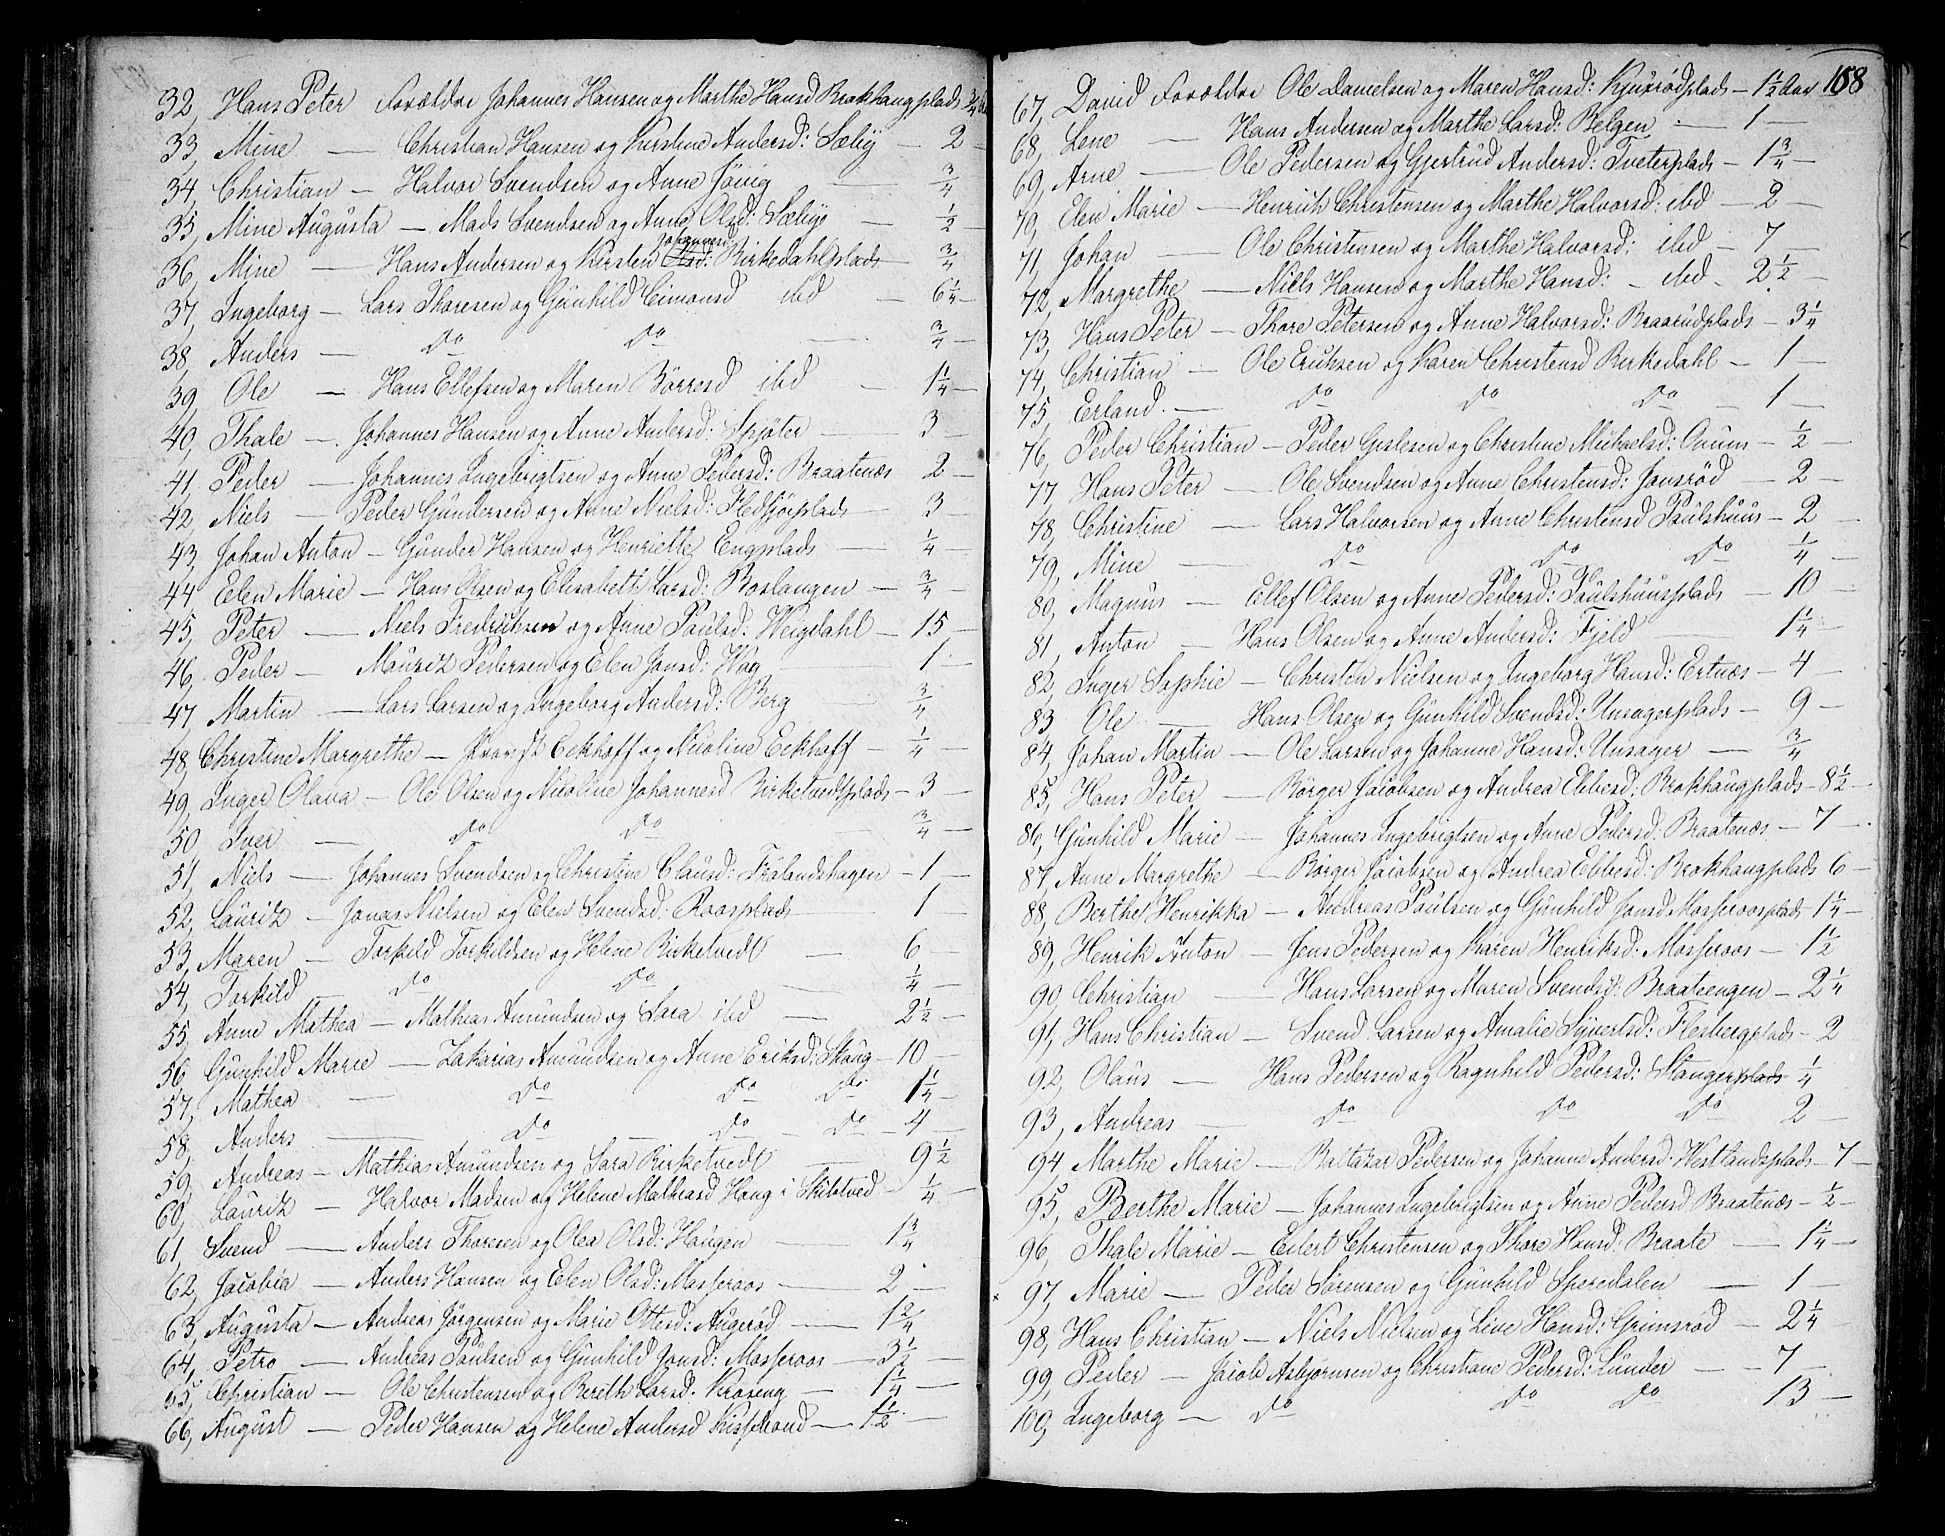 32, Hans Peter Forældre Johannes Hansen og Marthe Hansd Brekhaugplads 3/4 Aar
33, Mine — Christian Hansen og Kirstine Andersd: Sæby — 2 —
34, Christian — Halvor Svendsen og Anne — 3/4
35, Mine Augusta — Mads Svendsen og Anne Olsd: Sæbye — 1/2 —
36, Mine — Hans Andersen og Kirsten Johannesd: Birkedahlplads 3/4
37, Ingeborg — Lars Thoresen og Gunhild Simonsd ibd — 6 1/4 —
38, Anders — do do — 3/4 —
39, Ole — Hans Ellefsen og Maren Börresd ibd — 1 1/4 —
40, Thale — Johannes Hansen og Anne Andersd: Spjöter — 3 —
41, Peder — Johannes Ingebrigtsen og Anne Pedersd: Braatenæs 2 —
42, Niels — Peder Gundersen og Anne Nielsd: — 3
43, Johan Anton — Gunder Hansen og Henriette Engplads — 1/4 —
44, Elen Marie — Hans Olsen og Elisabeth Larsd: Boslangen — 3/4 —
45, Peter — Niels Fredriksen og Anne Paulsd: Weigdahl — 15 —
46, Peder — Mauritz Pedersen og Elen Jonsd: — 1 —
47, Martin — Lars Larsen og Ingeborg Andersd: Berg — 3/4
48, Christine Margrethe — Provst Eckhoff og Nicoline Eckhoff — 1/4 —
49, Inger Olava — Ole Olsen og Nicoline Johannesd Birketvedtplads — 3 —
50 Iver — do do — 3/4 —
51, Niels — Johannes Svendsen og Christine Clausd: Frölandshagen — 1 —
52, Lauritz — Jonas Nielsen og Elen Svendsd: Roosplads — 1
53, Maren — Torkild Torkildsen og Helene Birketvedt — 6 —
54, Torkild do do — 1/4 —
55, Anne Mathea — Mathias Amundsen og Sara ibd — 2 1/2 —
56, Gunhild Marie — Zakarias Amundsen og Anne Eriksd: Skoug — 10 —
57, Mathea — do do do 1 1/4 —
58, Anders — do — do — do — 4 —
59, Andreas — Mathias Amundsen og Sara Birketvedt — 9 1/2
60, Lauritz — Halvor Madsen og Helene Mathiasd Houg i Skibtved — 1/4 —
61, Svend — Anders Thoresen og Olea Olsd: Haugen — 1 3/4
62, Jacobia — Anders Hansen og Elen Olsd: Mosseroos — 2
63, Augusta — Andreas Jörgensen og Marie Ottesd: Augeröd — 1 2/4
64, Petro — Andreas Paulsen og Gunhild Jonsd: Mosseroos — 3 1/2 —
65, Christian — Ole Christensen og Bereth Larsd: Kroseng — 1 1/4 —
66, August — Peder Hansen og Helene Andersd — 1 1/2 —
168
67, David Forældre Ole Danielsen og Maren Hansd: — 1 1/2 Aar
68, Lene — Hans Andersen og Marthe Larsd: Belgen — 1 —
69, Arne — Ole Pedersen og Gjertrud Andersd: Tveterplads — 1 3/4 —
70, Elen Marie — Henrich Christensen og Marthe Halvorsd: ibd — 2 —
71, Johan — Ole Christensen og Marthe Halvorsd: ibd — 7 —
72, Margrethe — Niels Hansen og Marthe Hansd: — ibd — 2 1/2 —
73, Hans Peter — Thore Petersen og Anne Halvorsd: Braarudplads — 3 1/4
74, Christian — Ole Erichsen og Karen Christensd Birkedahl — 1 —
75, Erland — do do do — 1 —
76, Peder Christian — Peder Gislesen og Christine Michaelsd: — 1/2 —
77, Hans Peter — Ole Svendsen og Anne Christensd: Jonsröd — 2 —
78, Christine — Lars Halvorsen og Anne Christensd Paulshuus — 2 —
79, Mine — do do do 1/4 —
80, Magnus — Ellef Olsen og Anne Pedersd: Paulshuusplads — 10 —
81, Anton — Hans Olsen og Anne Andersd: Fjeld — 1 1/4 —
82, Inger Sophie — Christen Nielsen og Ingeborg Hansd: Ertnæs — 4 —
83 Ole — Hans Olsen og Gunhild Svendsd: Unsagerplads — 9 —
84, Johan Martin — Ole Larsen og Johanne Hansd: Unsager — 3/4
85, Hans Peter — Börger Jacobsen og Andrea Ebbesd: Brekhaugplads — 8 1/2 —
86, Gunhild Marie — Johannes Ingebrigtsen og Anne Pedersd: Braatenæs — 7 —
87, Anne Margrethe — Börger Jacobsen og Andrea Ebbesd: Brekhaugplads 6 —
88, Berthe Henrikka — Andreas Paulsen og Gunhild Jonsd Mosseroosplads 1 1/4 —
89, Henrik Anton — Jens Pedersen og Karen Henriksd: Mosseroos — 1 1/2
90, Christian — Hans Larsen og Maren Svendsd: Braateengen — 2 1/4
91, Hans Christian — Svend Larsen og Amalie Syvertsd: Flesbergplads — 2
92, Olaus — Hans Pedersen og Ragnhild Pedersd: Stangerplads 1/4
93, Andreas — do do do 2 —
94 Marthe Marie — Baltazar Pedersen og Johanne Andersd: Westlandsplads — 7 —
95, Berthe Marie — Johannes Ingebrigtsen og Anne Pedersd Braatenæs — 1/2 —
96, Thale Marie — Eilert Christensen og Thore Hansd: Braate — 1 1/4 —
97, Marie — Peder Sörensen og Gunhild Speredalen — 1 —
98, Hans Christian — Niels Nielsen og Live Hansd: Grimsröd — 2 1/4 —
99, Peder — Jacob Asbjornsen og Christiane Pedersd: Sunder — 7 —
100, Ingeborg — do do do 13 —